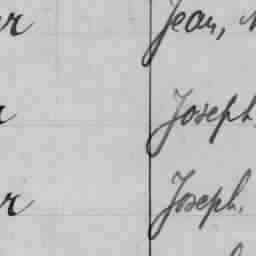 r Jean,
r Joseph,
r Joseph.